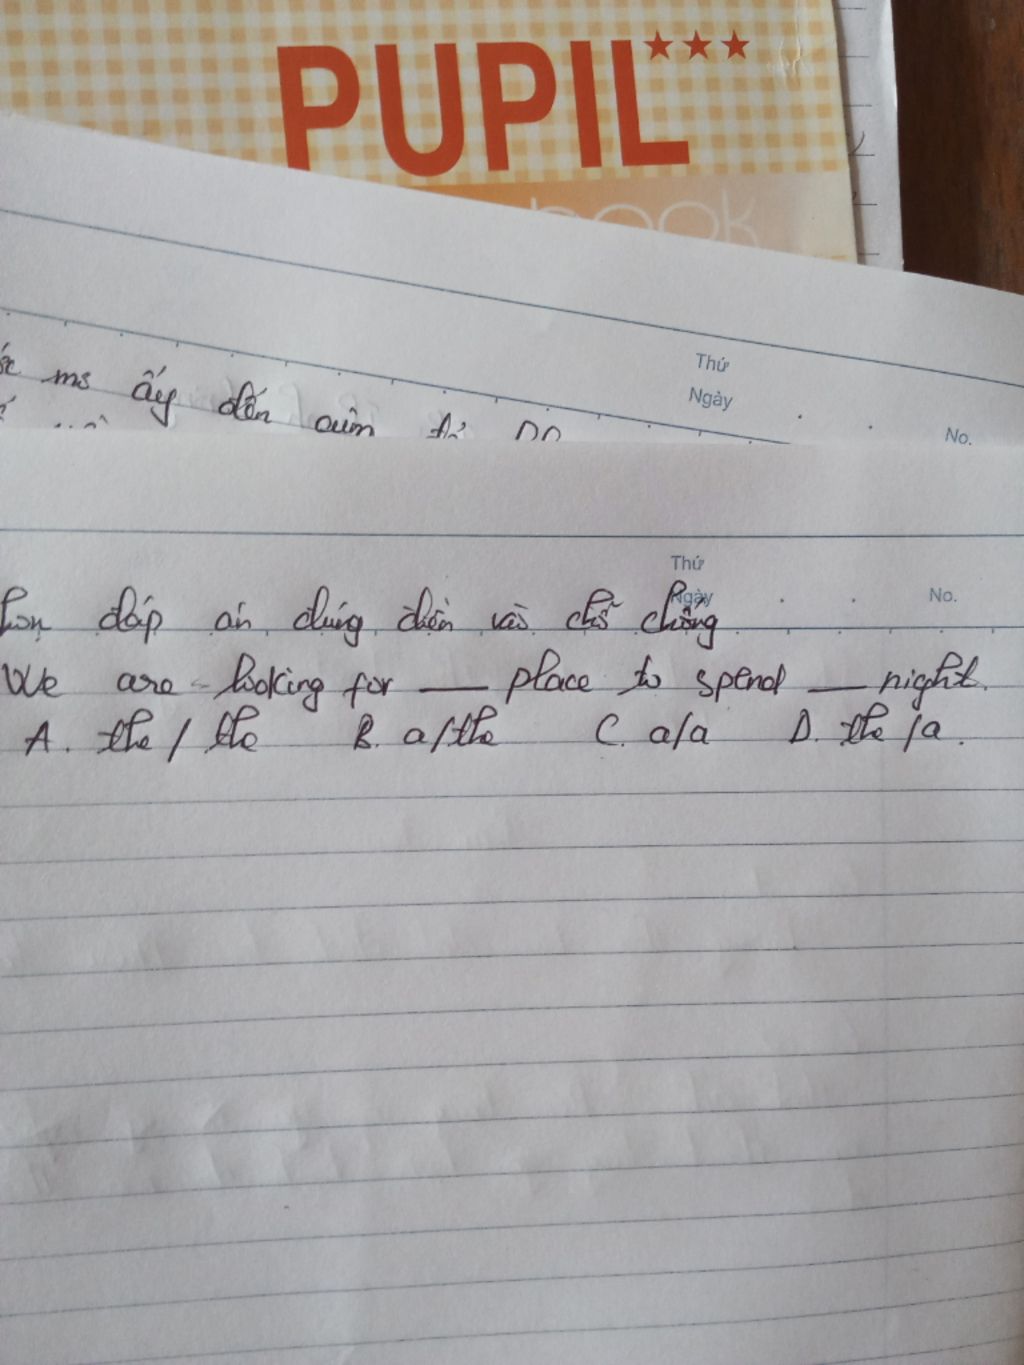 PUPIL
book
Thứ
Ngày
No.
ms ấy đến cuộn
Thứ
Ngày
No.
đáp án đúng điền vào chỗ chống
We are looking for ___ place to spend ___ night.
A. the / the B. a/the C. a/a D. the /a.